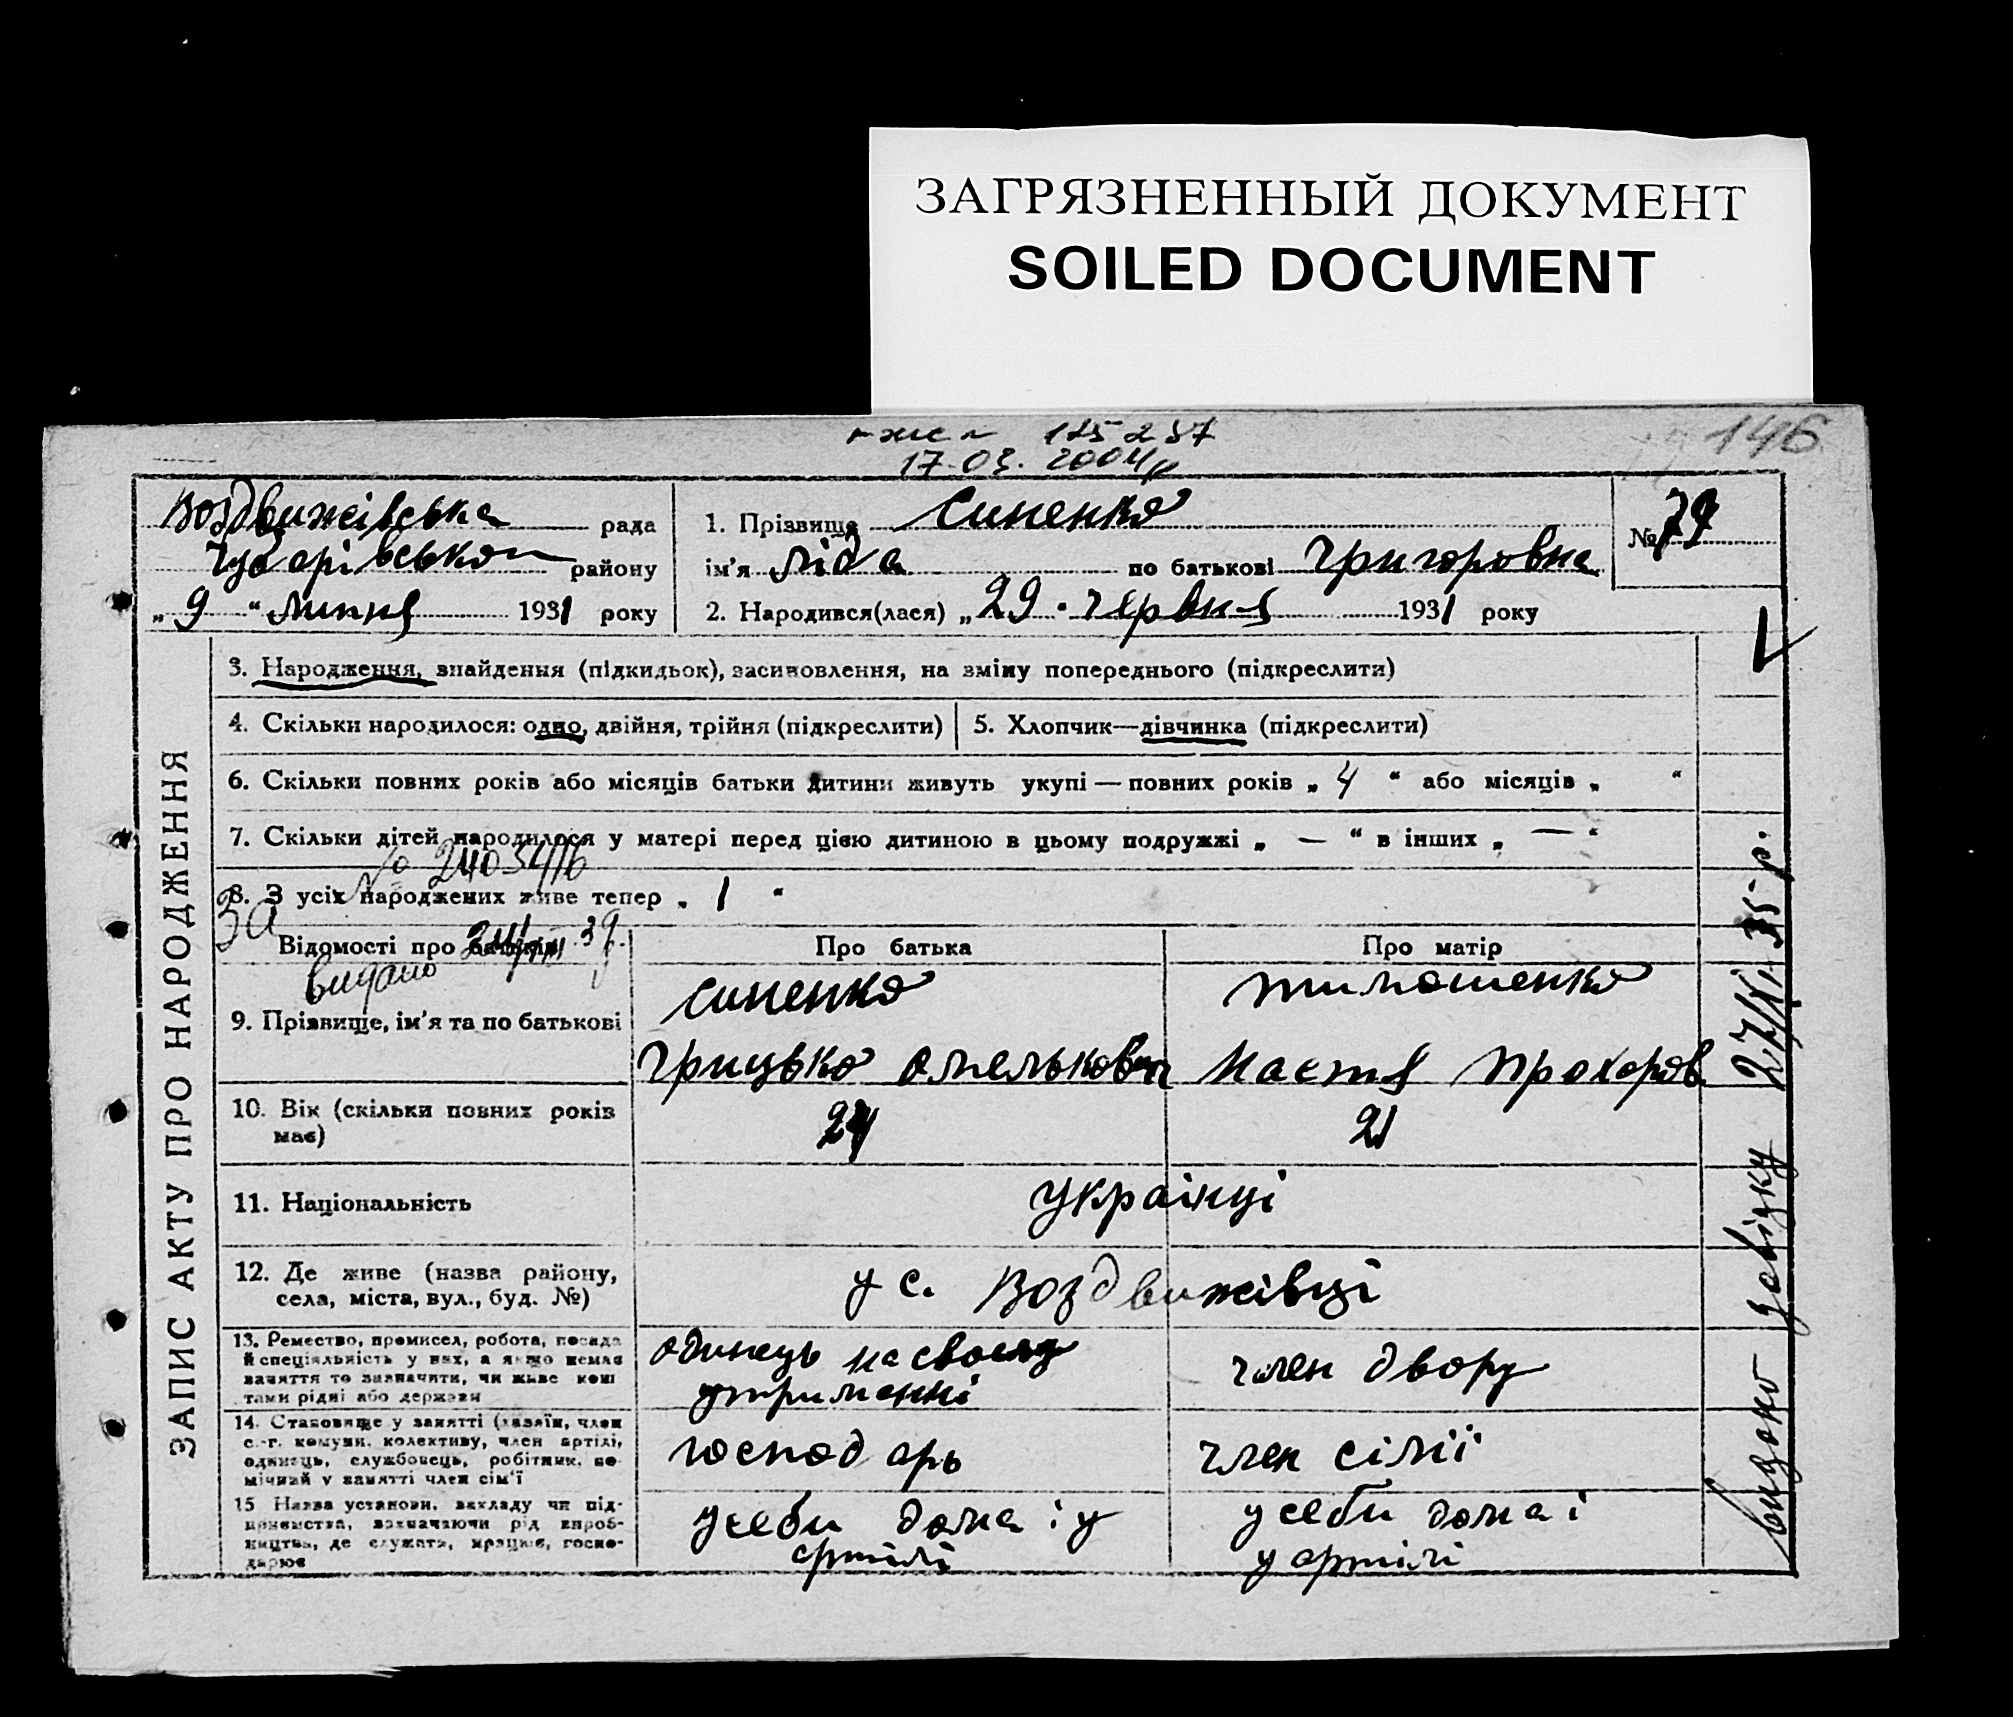 ЗАГРЯЗНЕННЫЙ ДОКУМЕНТ
SOILED DOCUMENT
146
17.03.2004
Воздвижівська рада
Чубарівського району
„ 9 “ Липня 1931 року
1. Прізвище Синенко
ім'я Ліда по батькові Григоровна
2. Народився(лася) „ 29 “ червня 1931 року
№ 79
ЗАПИС АКТУ ПРО НАРОДЖЕННЯ
3. Народження, знайдення (підкидьок), засиновлення, на зміну попереднього (підкреслити)
4. Скільки народилося: одно, двійня, трійня (підкреслити)
5. Хлопчик—дівчинка (підкреслити)
6. Скільки повних років або місяців батьки дитини живуть укупі — повних років „ 4 “ або місяців „ “
7. Скільки дітей народилося у матері перед цією дитиною в цьому подружжі „ — “ в інших „ — “
8. З усіх народжених живе тепер „ 1 “
За № 2403416
видано
Відомості про батьків
Про батька
Про матір
9. Прізвище, ім'я та по батькові
Синенко
Грицько Омелькович
Тимошенко
Настя Прохоров
10. Вік (скільки повних років має)
24
21
11. Національність
Українці
12. Де живе (назва району, села, міста, вул., буд. №)
у с. Воздвижівці
13. Ремество, промисел, робота, посада
й спеціяльність у них, а якщо немає
заняття то зазначити, чи живе кош
тами рідні або держави
одинець на своему
утриманні
член двору
14. Становище у занятті (хазяїн, член
с.-г. комуни, колективу, член артілі,
одинець, службовець, робітник, по-
мічний у занятті член сім'ї
господарь
член сімії
15 Назва установи, закладу чи під-
приємства, зазначаючи рід вироб-
ництва, де служать, працює, госпо-
дарює
у себи дома і у
артілі
у себи дома і
у артілі
видано довідку 27/XI-35 р.